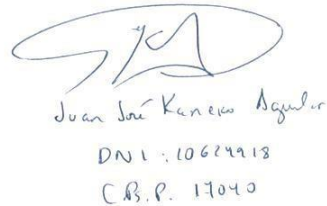 Juan José Kancko Aguilar
DNI : 10624918
C.B.P. 17040